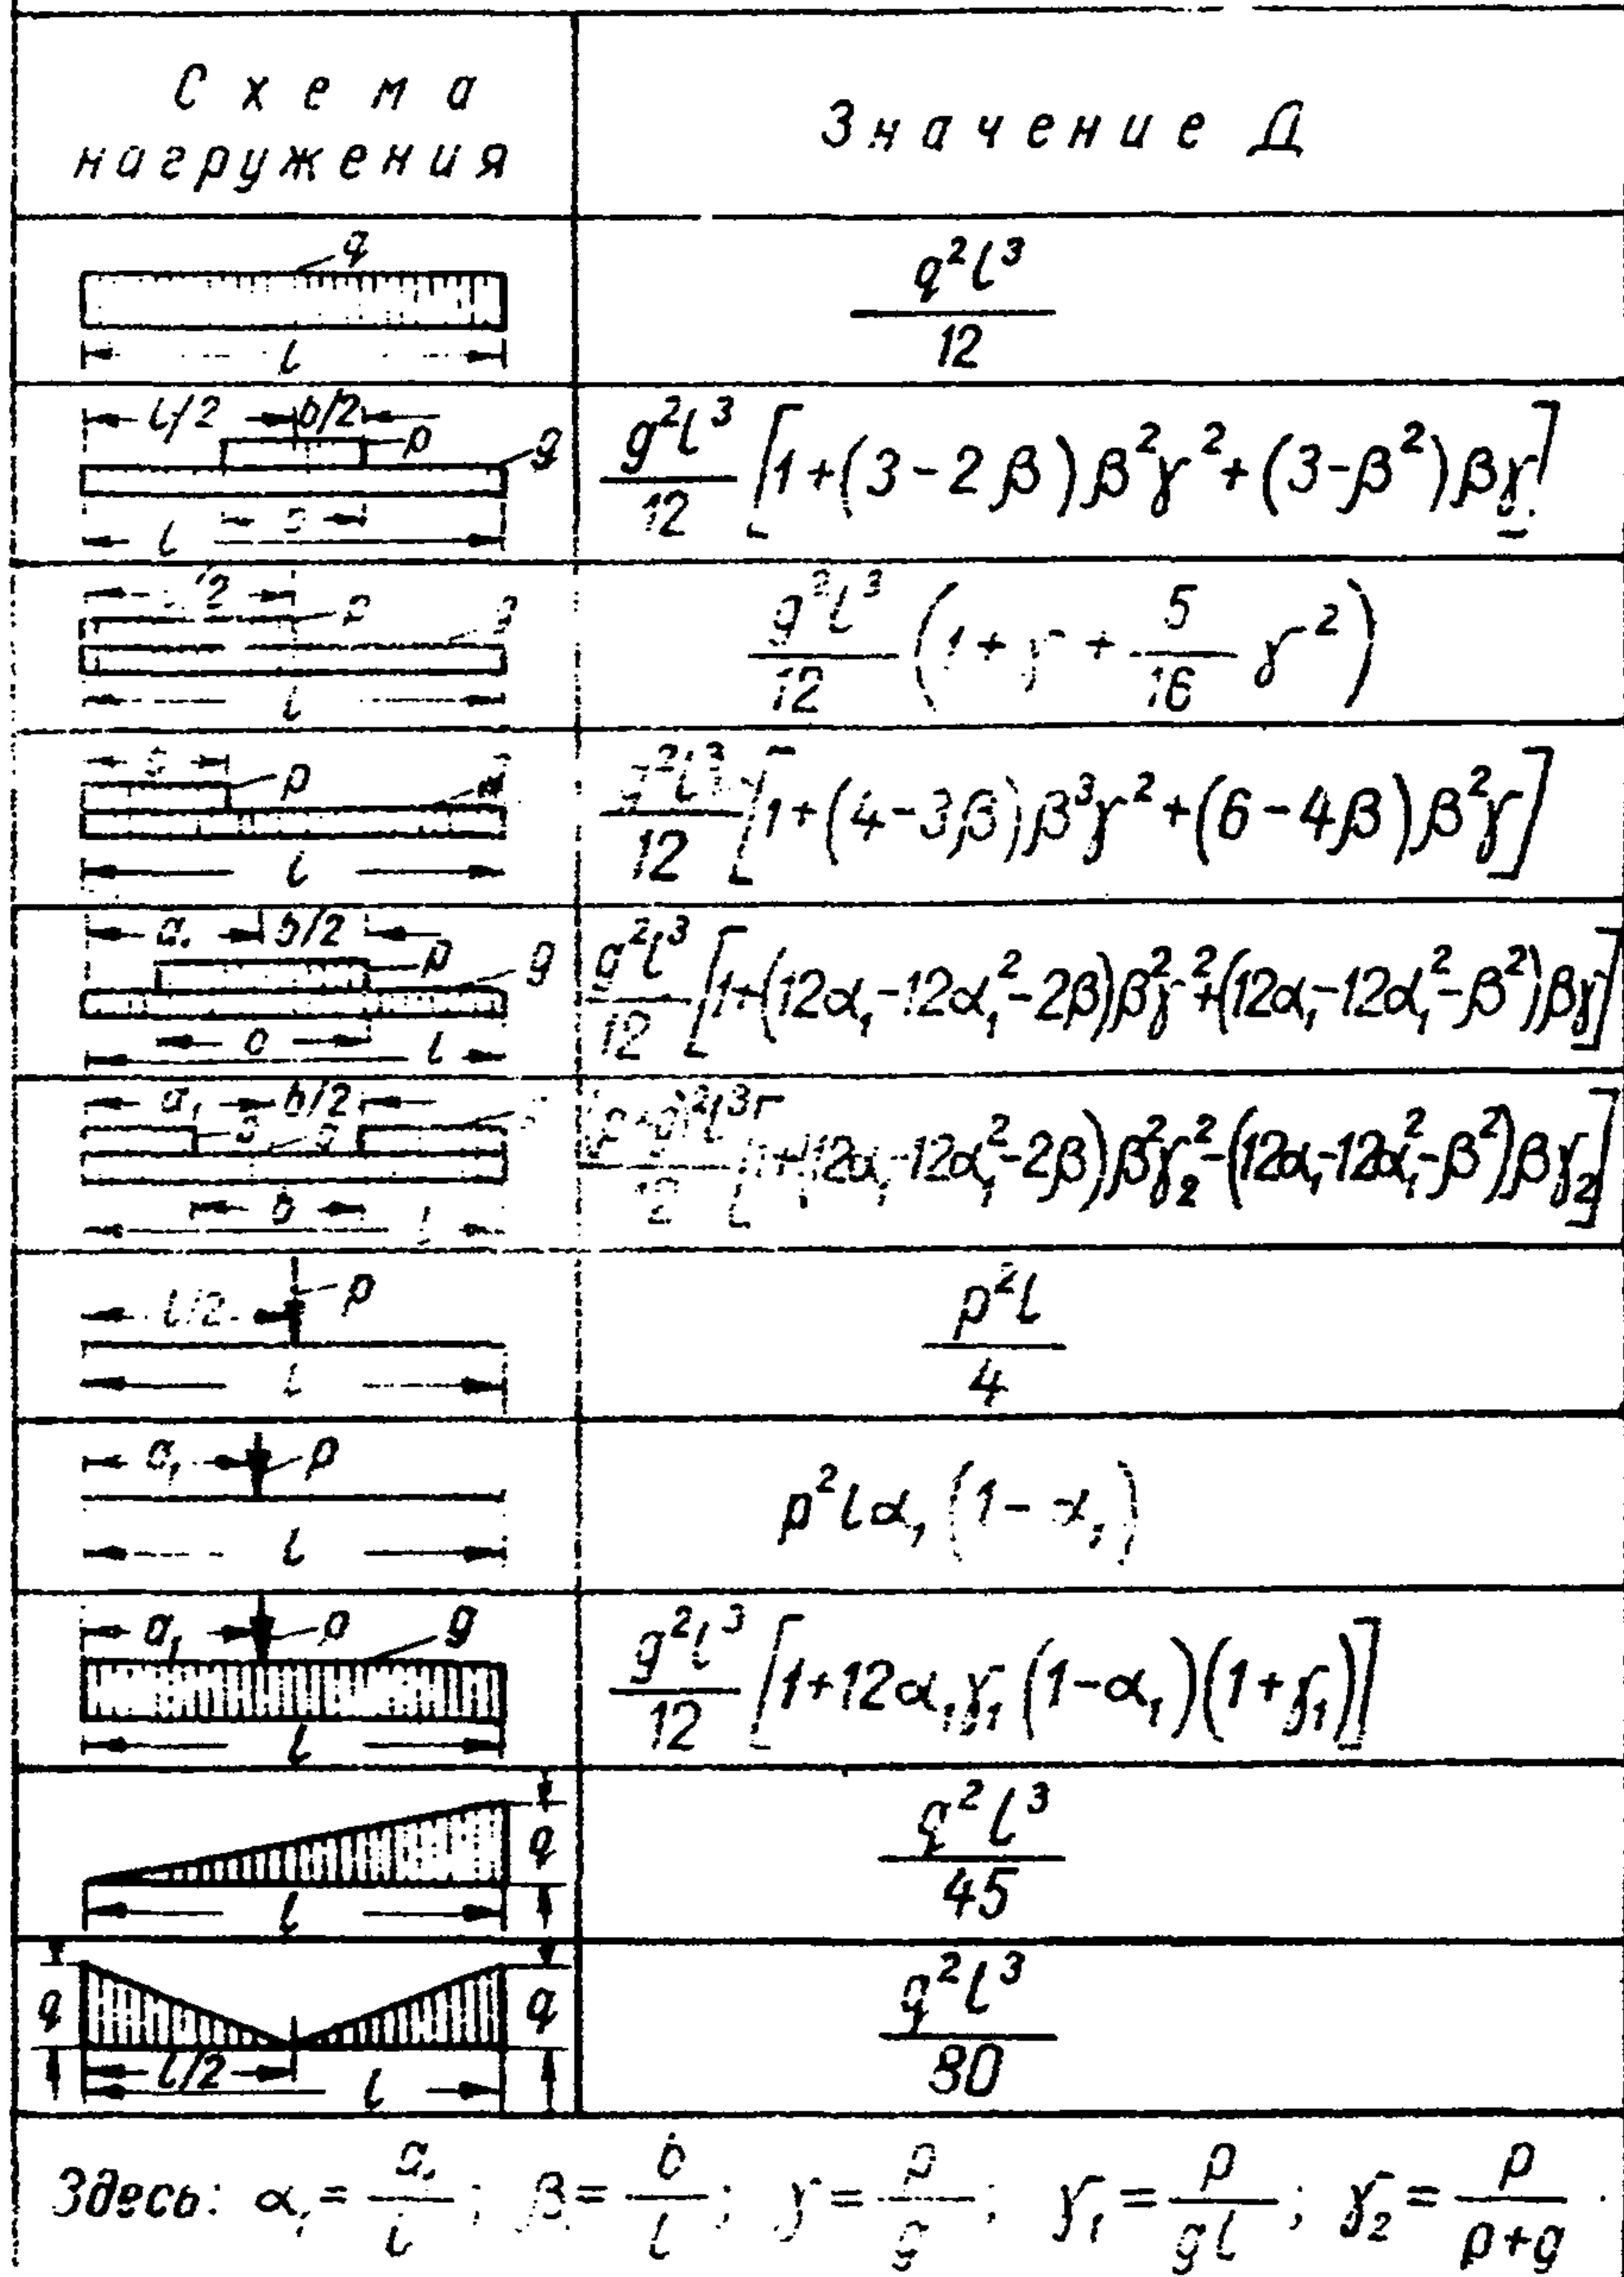 Схема
нагружения
Значение Д
q
l
q²l³/12
l/2 b/2
p g
l
g²l³/12 [1+(3-2β)β²γ²+(3-β²)βγ]
p g
l
g²l³/12 (1+γ+5/16 γ²)
p
l
g²l³/12 [1+(4-3β)β³γ²+(6-4β)β²γ]
a₁ b/2
p g
l
g²l³/12 [1+(12α₁-12α₁²-2β)β²γ²+(12α₁-12α₁²-β²)βγ]
a₁ b/2
b
l
[1+(12α₁-12α₁²-2β)β²γ₂²-(12α₁-12α₁²-β²)βγ₂]
l/2 p
l
p²l/4
a₁ p
l
p²lα₁(1-α₁)
a₁ p g
l
g²l³/12 [1+12α₁γ₁(1-α₁)(1+γ₁)]
q
l
q²l³/45
q q
l/2 l
q²l³/80
Здесь: α₁=a₁/l; β=b/l; γ=p/g; γ₁=p/gl; γ₂=p/p+g